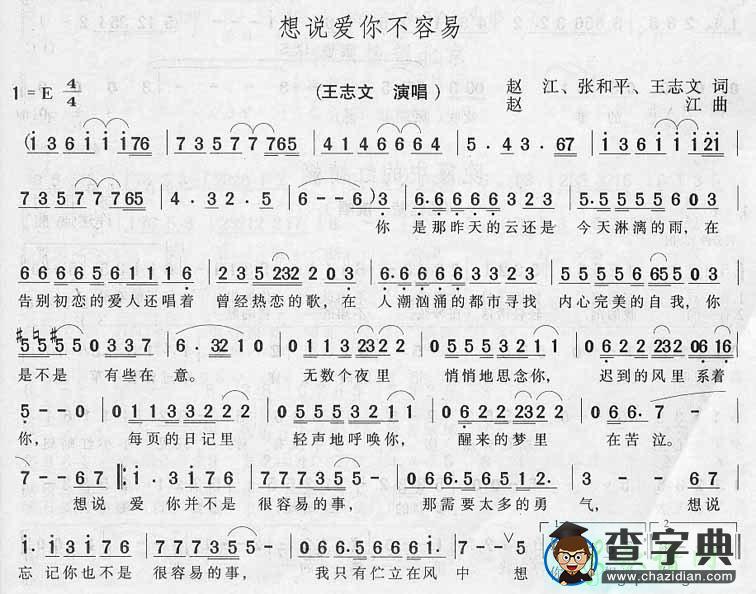 想说爱你不容易
1=E 4/4
(王志文 演唱)
赵 江、张和平、王志文 词
赵 江 曲
(1 3 6 1 1 1 76 | 7 3 5 7 7 7 65 | 4 1 4 6 6 6 4 | 5 · 4 3 · 67 | 1 3 6 1 1 1 21 |
7 3 5 7 7 7 65 | 5 · 2 3 · 2 | 6 - - 6) 3 | 6. 6 6 6 6 3 2 3 | 5. 5 5 5 5 6 0 3 |
你 是那昨天的云还是 今天淋漓的雨,在
6 6 6 6 5 6 1 1 1 6 | 2 3 5 232 2 0 3 | 6. 6 6 6 6 6 1 2 3 | 5 5 5 5 5 65 5 0 3 |
告别初恋的爱人还唱着 曾经热恋的歌,在 人潮汹涌的都市寻找 内心完美的自我,你
5 5 5 5 0 3 3 7 | 6 · 32 1 0 | 0 2 2 3 232 2 | 0 1 1 3 3 2 2 1 | 0 6 2 2 232 06 16 |
是不是 有些在 意。 无数个夜里 悄悄地思念你, 迟到的风里 系着
5 - - 0 | 0 1 1 3 3 2 2 2 | 0 1 1 3 3 2 2 1 | 0 6 2 2 232 2 | 0 6 6 · 7 - |
你, 每页的日记里 轻声地呼唤你, 醒来的梦里 在苦泣。
7 - - 67 |: 1 · 3 1 7 6 | 7 7 7 3 5 5 - | 0 6 6. 5 6 5 1 2 | 3 - - 67 |
想说 爱 你并不是 很容易的事, 那需要太多的勇 气, 想说
1. 1 3 1 7 6 | 7 7 7 3 5 5 - | 0 6 6. 5 6 6 6 1 | 7 - - 5
忘 记你也不是 很容易的事, 我只有伫立在风 中 想
查字典
www.chazidian.com